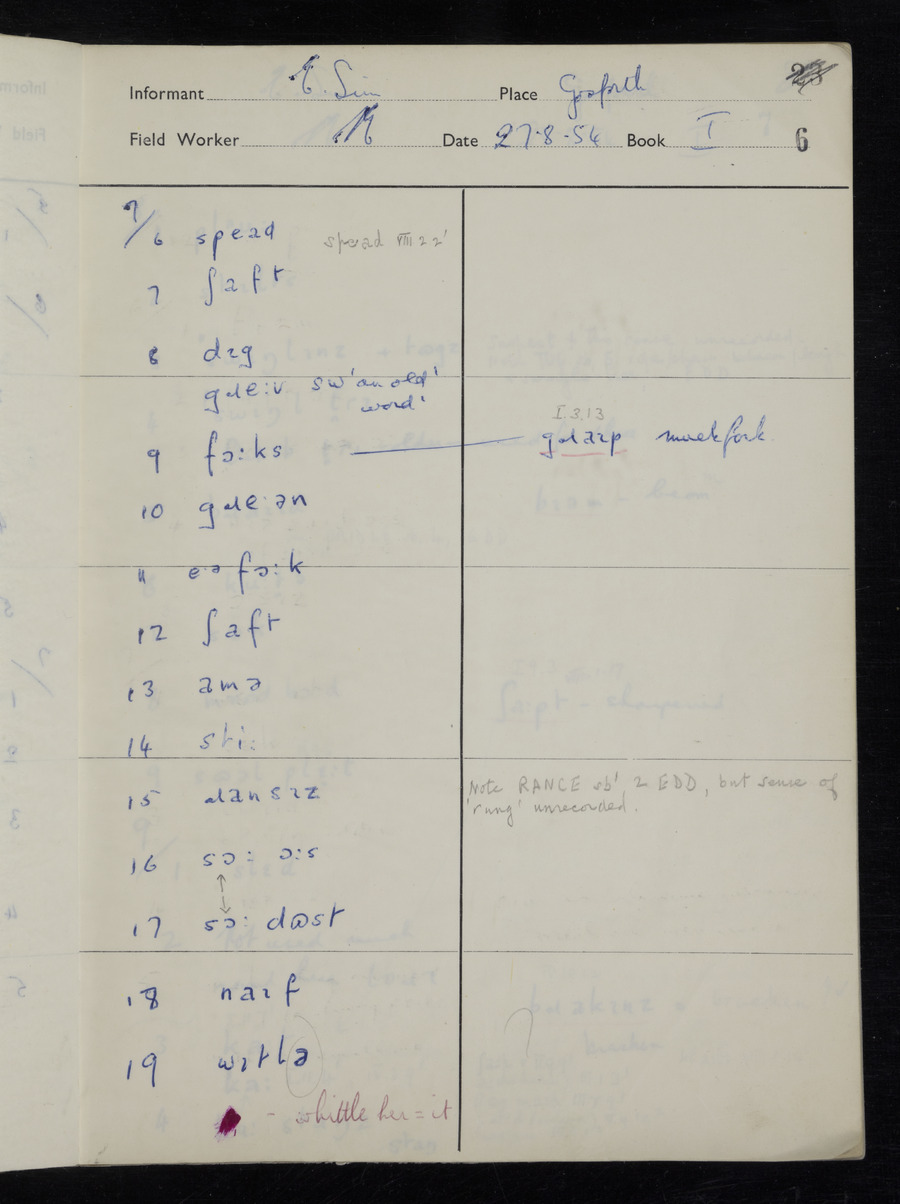 Informant E. Sim Place Gosforth
Field Worker Date 27·8·54 Book I 6
7/6 spɛad VIII 2 2'
7 ʃaft
8 dɪg
gɹeːv sw 'an old'
word'
9 fɔːks I.3.13 gɹaɪp muckfork
10 gɹeːən
11 eːə fɔːk
12 ʃaft
13 amə
14 stiː
15 ɹansɪz Note RANCE sb' 2 EDD, but sense of
'rung' unrecorded.
16 sɔː ɔːs
↕
17 sɔː dʊst
18 naɪf
19 wɪtlə
– whittle her = it